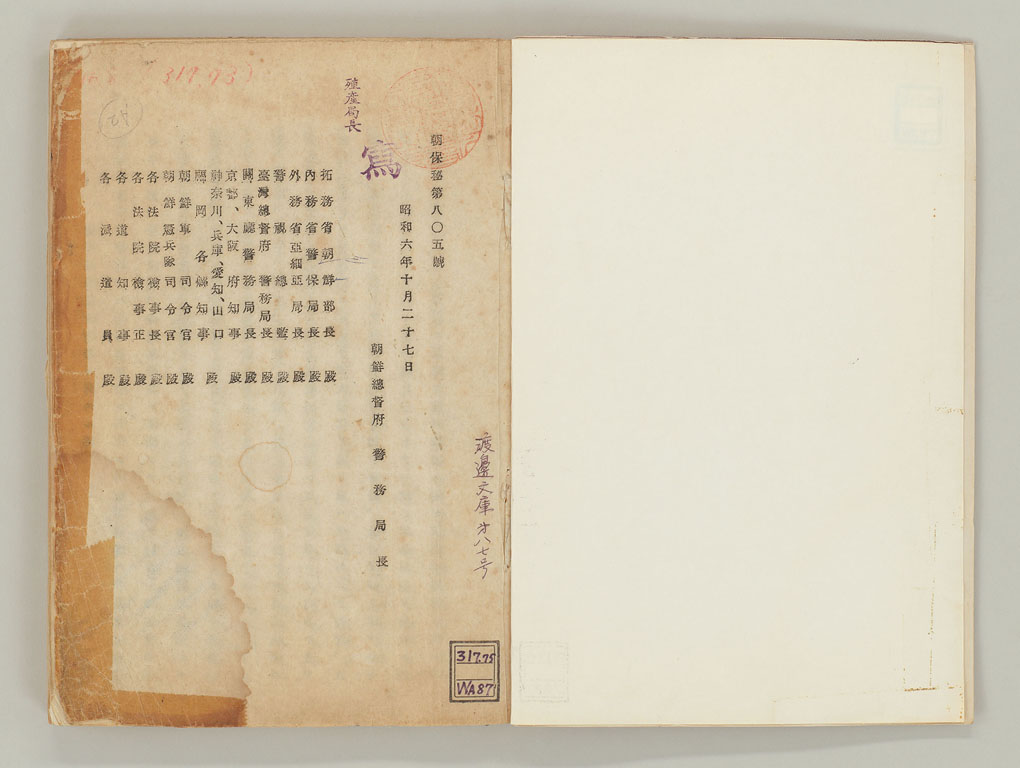 渡邊文庫 才八七号
朝保秘第八〇五號
昭和六年十月二十七日
朝鮮總督府警務局長
殖産局長
寫
拓務省朝鮮部長殿
內務省警保局長殿
外務省亞細亞局長殿
警視總監殿
臺灣總督府警務局長殿
關東廳警務局長殿
京都、大阪府知事殿
神奈川、兵庫、愛知、山口
福岡各縣知事殿
朝鮮軍司令官殿
朝鮮憲兵隊司令官殿
各法院檢事長殿
各法院檢事正殿
各道知事殿
各派遣員殿
317.93
317.75
WA87